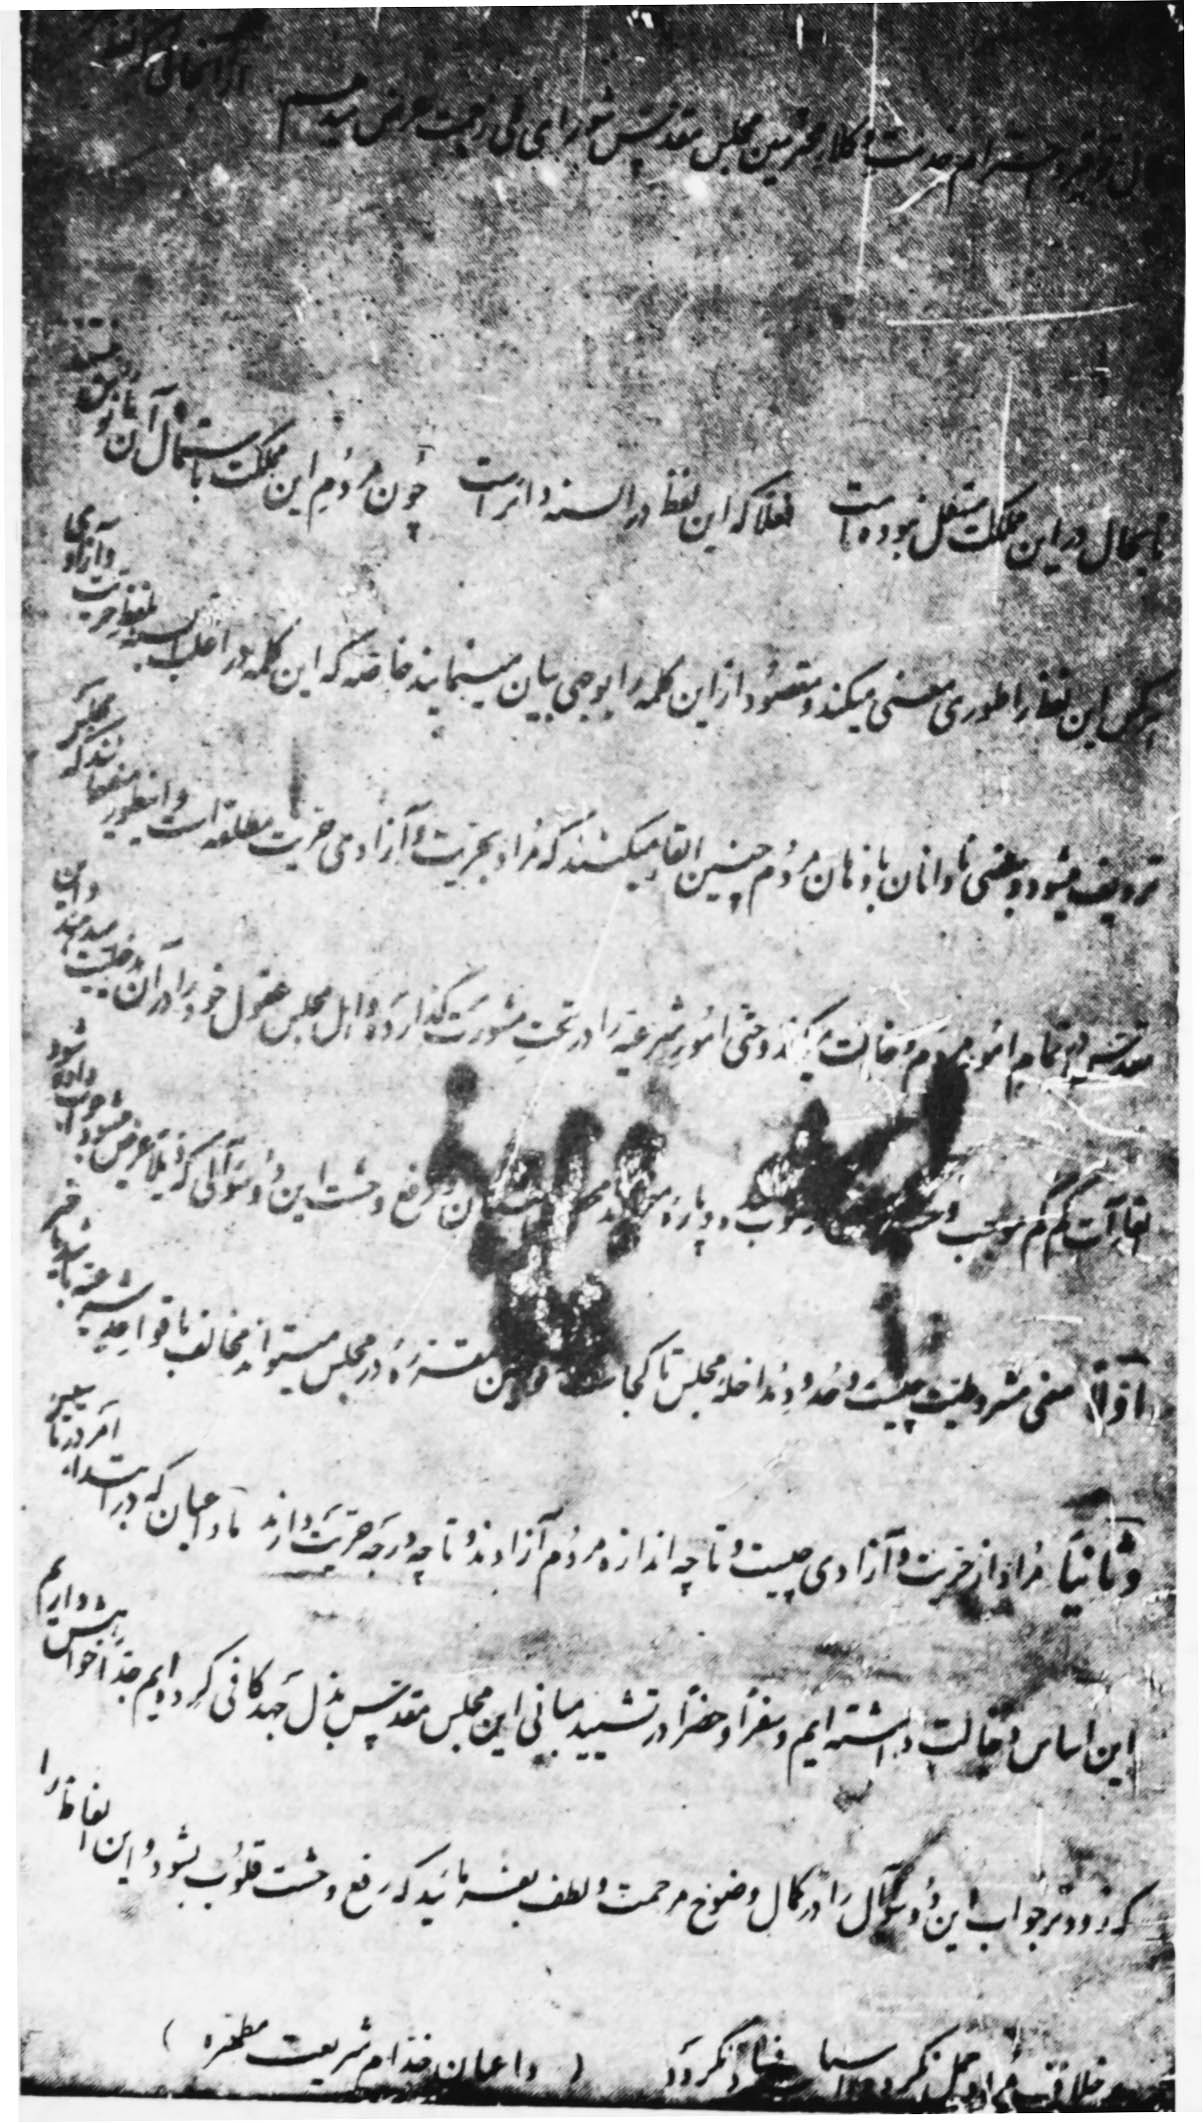 توقیر و احترام خدمت وکلاء محترمین مجلس مقدس شورای ملی زحمت عرض میدهیم از آنجائی که لفظ
تا بحال در این مملکت مستعمل نبوده است فعلاً که این لفظ در السنه دائر است چون مردم این مملکت باستعمال آن
هر کس این لفظ را طوری معنی میکند و مقصود از این کلمه را بوجهی بیان مینمایند خاصه که این کلمه در اغلب السنه بلفظ حریت و آزادی
تردیف میشود و بعضی نادانان باذهان مردم چنین القاء میکنند که مراد بحریت و آزادی حریت مطلقه است و اینطور میفهمانند که مجلس
مقدس در تمام امور مردم دخالت میکند و حتی امور شرعیه را در تحت مشورت گذارده و اهل مجلس عقول خود را در آن مدخلیت میدهند و این
القاآت کم کم موجب وحشت قلوب رفع وحشت این دو سؤالی که ذیلاً عرض میشود جواب داده شود
اولاً معنی مشروطیت چیست و حدود مداخله مجلس تا کجا است قوانین مقرره در مجلس میتواند مخالف با قواعد شرعیه باشد یا خیر
و ثانیاً مراد از حریت و آزادی چیست و تا چه اندازه مردم آزادند و تا چه درجه حریت دارند ما داعیان که در ابتداء امر در تأسیس
این اساس دخالت داشته ایم و سفراً و حضراً در تشیید مبانی این مجلس مقدس بذل جهد کافی کرده ایم جداً خواهش داریم
که زودتر جواب این دو سؤال را در کمال وضوح مرحمت و لطف بفرمائید که رفع وحشت قلوب بشود و این الفاظ را
بر خلاف مراد حمل نکرده اسباب فساد نگردد ( داعیان خدام شریعت مطهره )